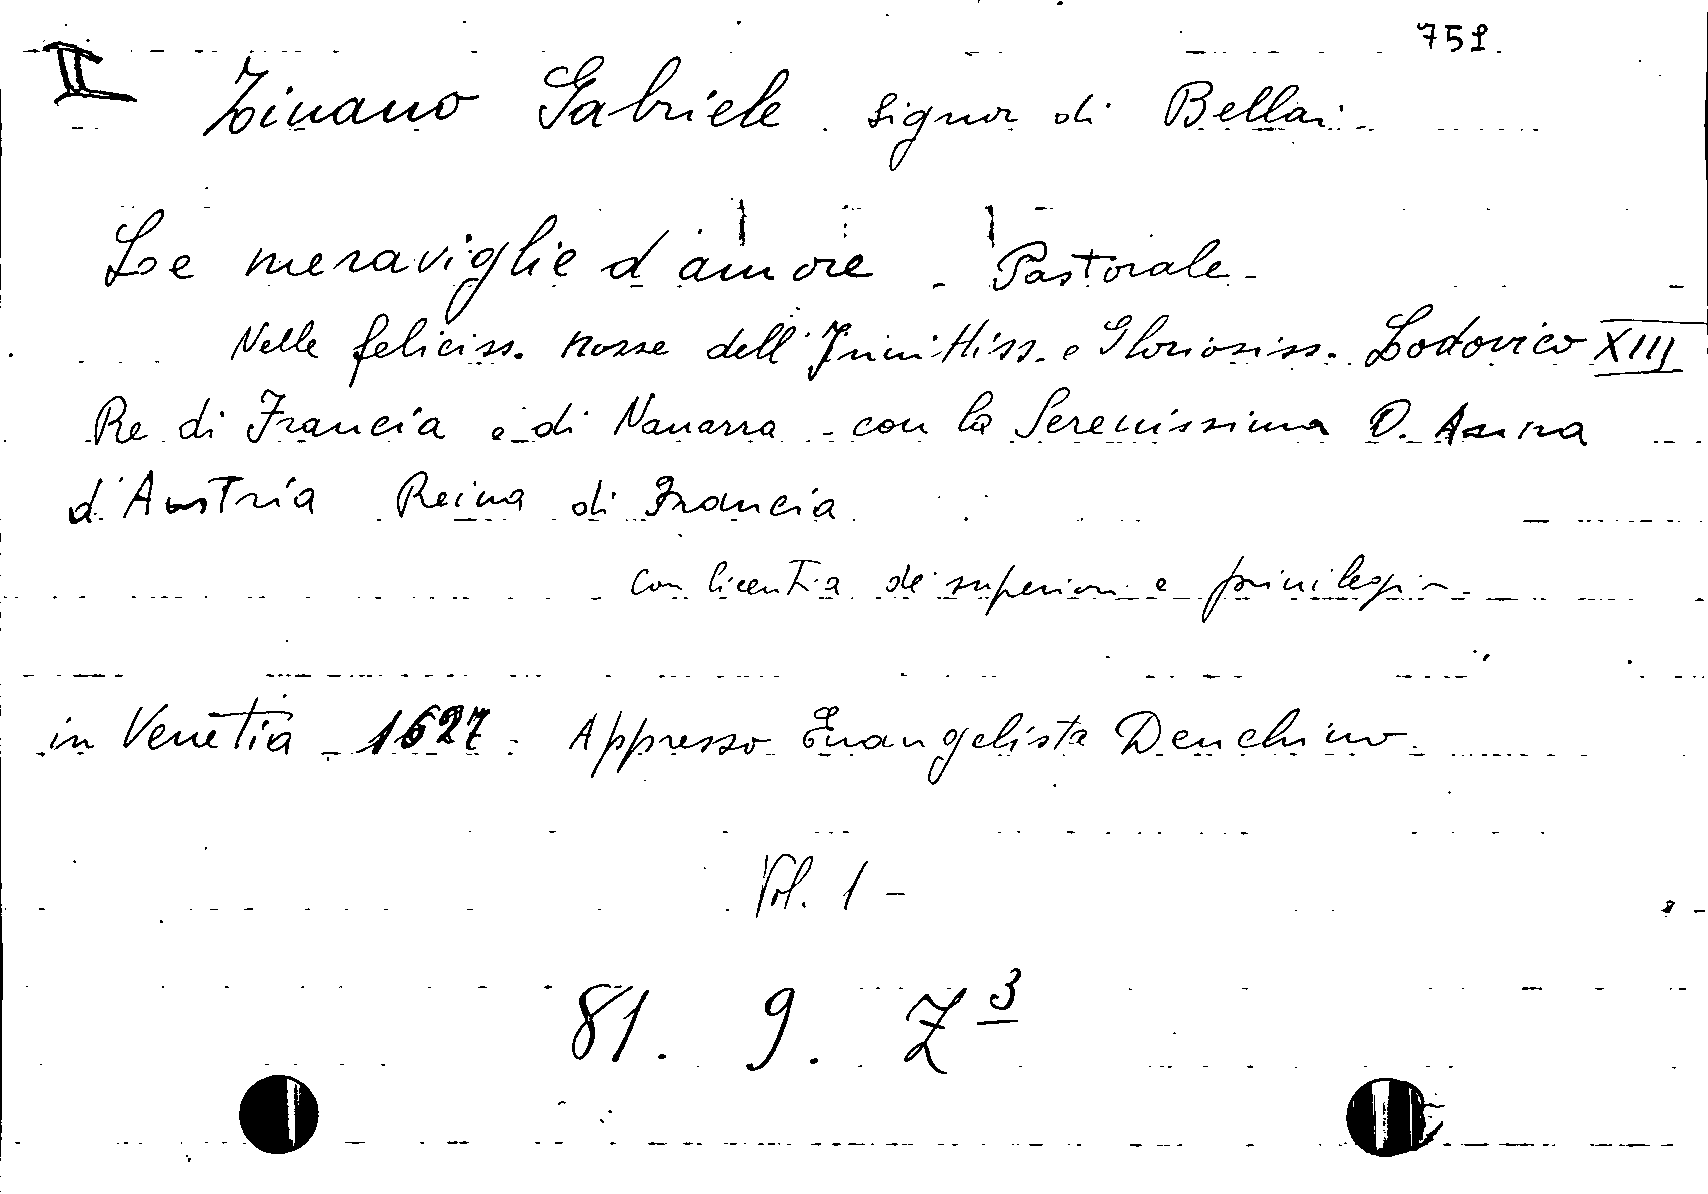 751
II Zinano Gabriele signor di Bellai
Le meraviglie d'amore - Pastorale -
Nelle feliciss. nozze dell'Inuittiss. e Gloriosiss. Lodovico XIII
Re di Francia e di Nauarra - con la Serenissima D. Anna
d'Austria Reina di Francia
con licentia de' superiori e priuilegio
in Venetia - 1627. Appresso Euangelista Deuchino
Vol. 1 -
81. 9. Z 3